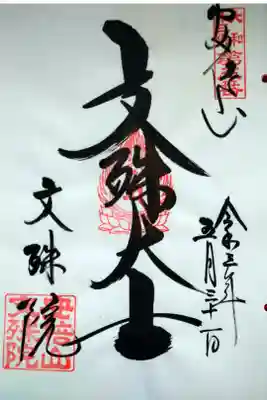 安倍山
令和三年
五月三十一日
文殊大士
文殊院